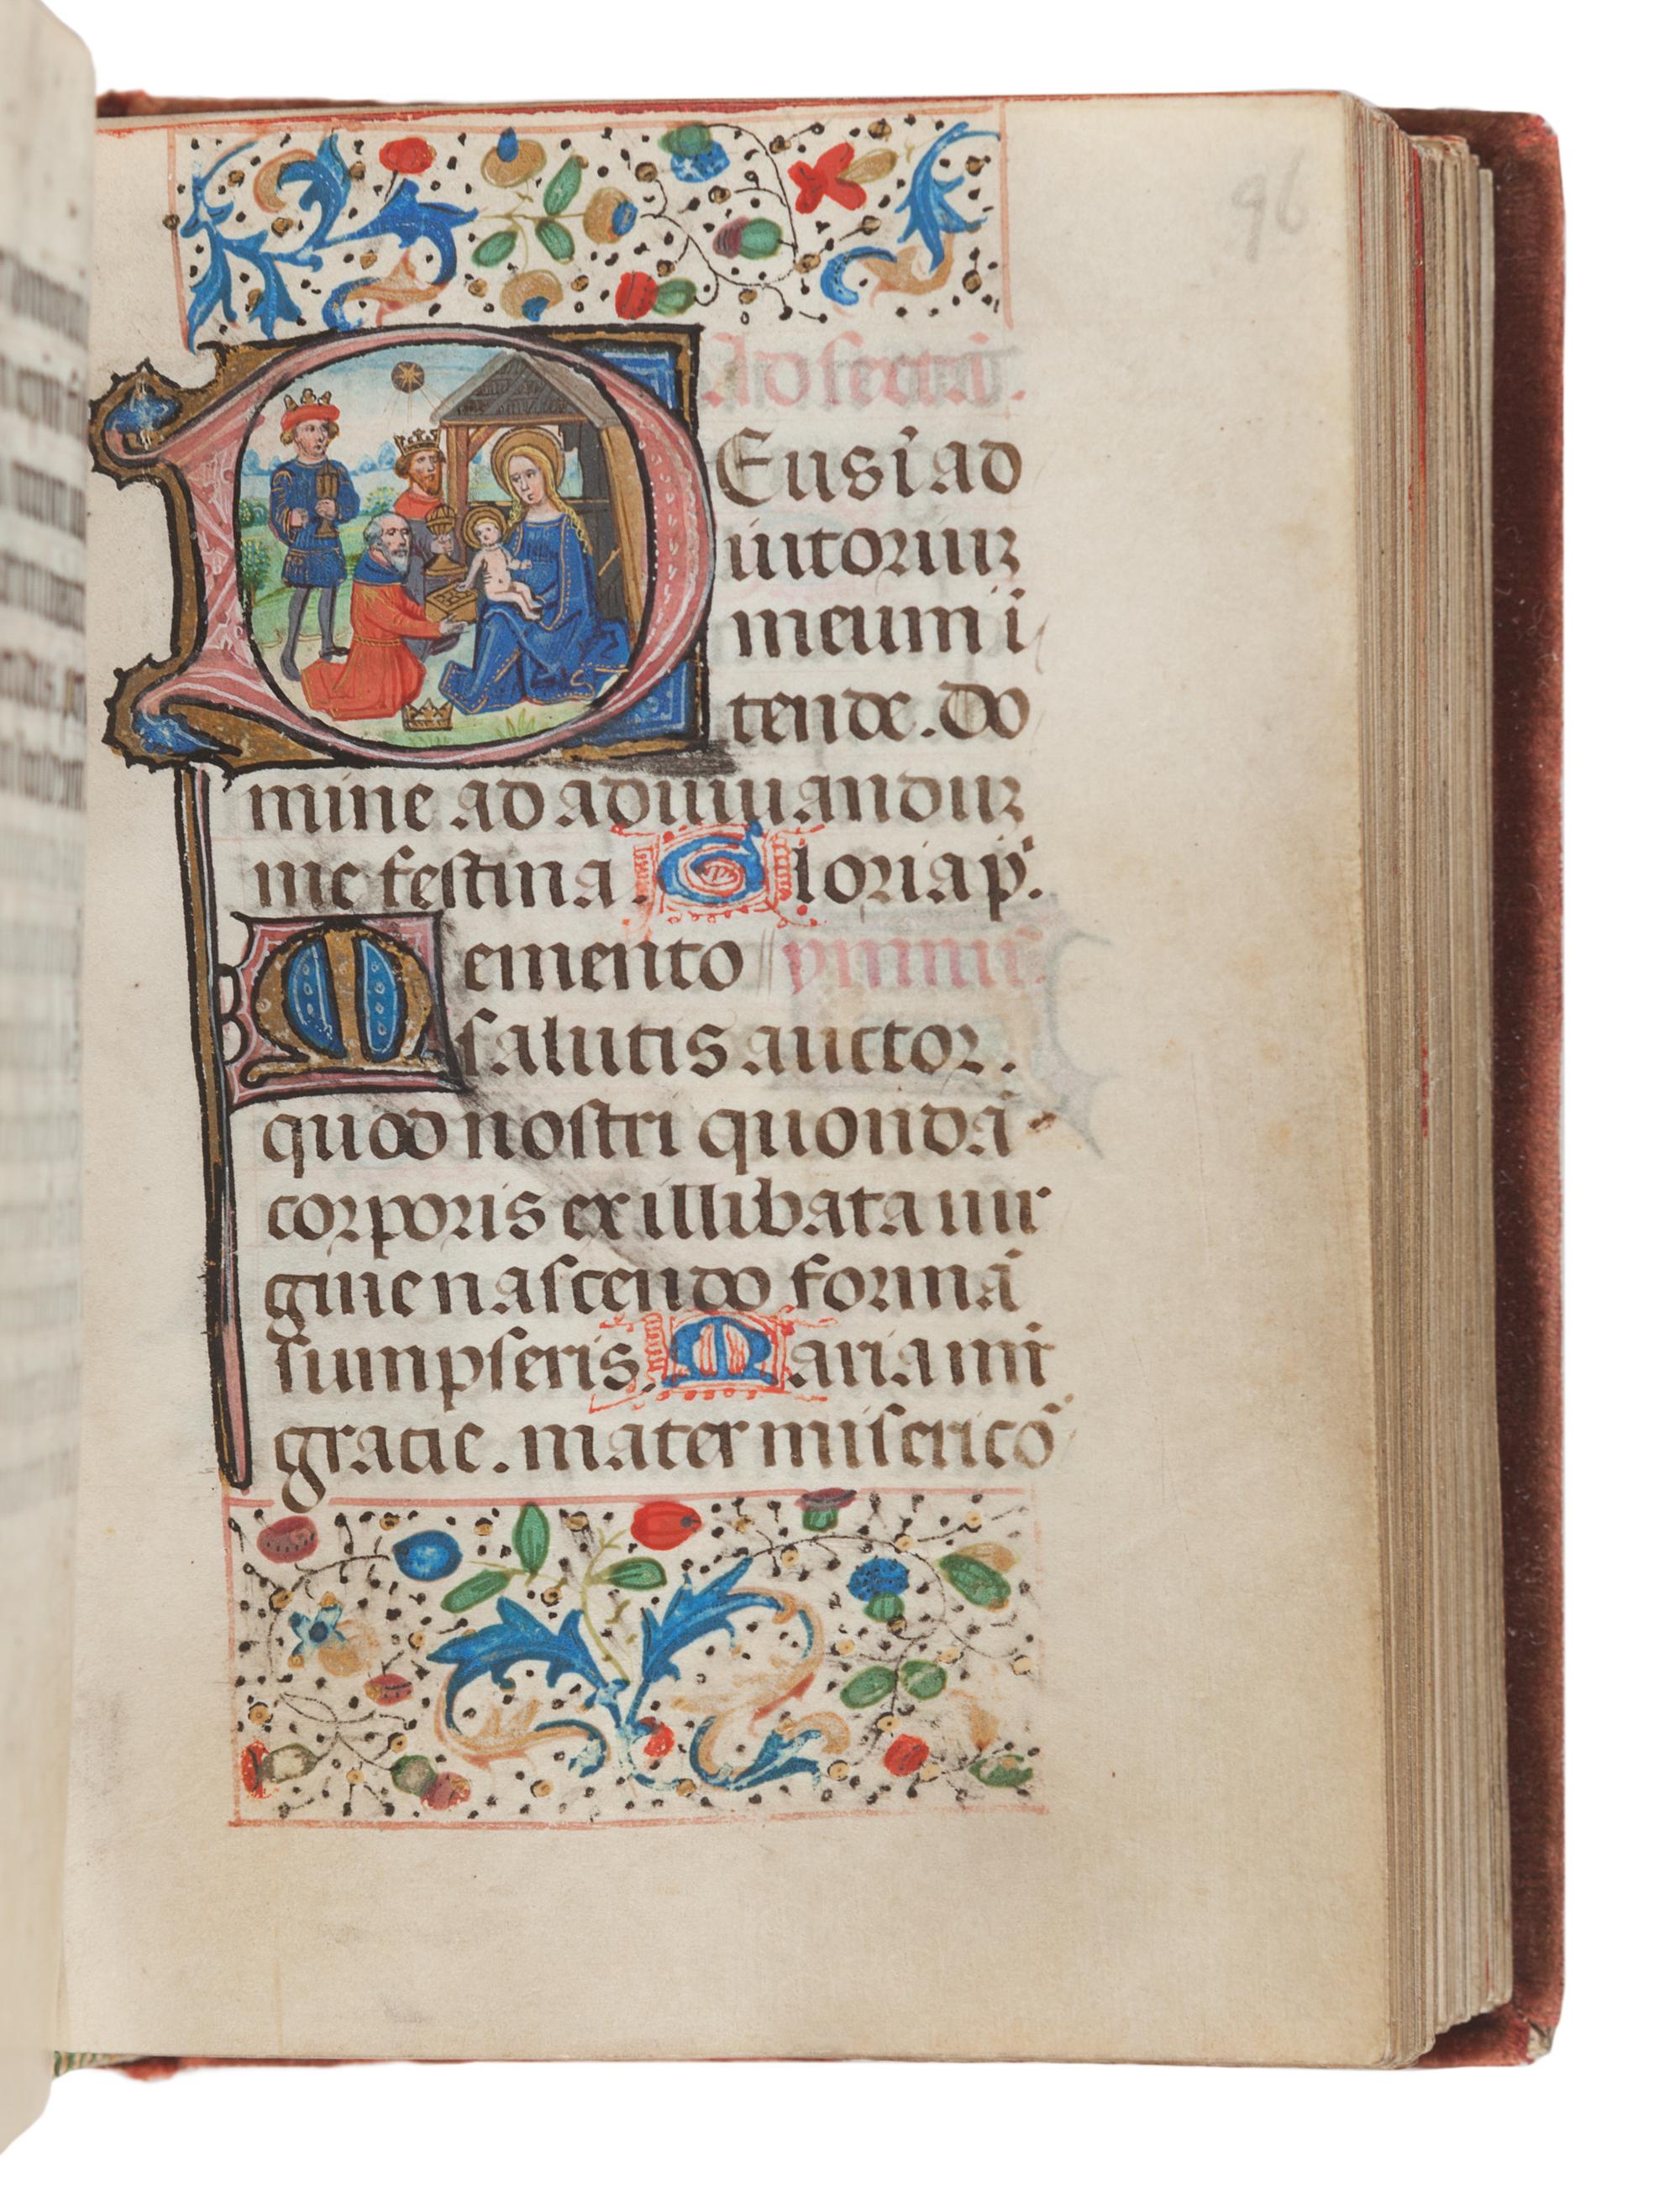 96
Ad sextā.
DEus ī ad
iutoriuꝫ
meum i
tende. Do
mine ad adiuuanduꝫ
me festina. Gloria p̄.
Memento ymnus.
salutis auctor.
quod nostri quondā
corporis ex illibata uir
gine nascendo formā
sumpseris. Maria mr̄
gracie. mater misericō